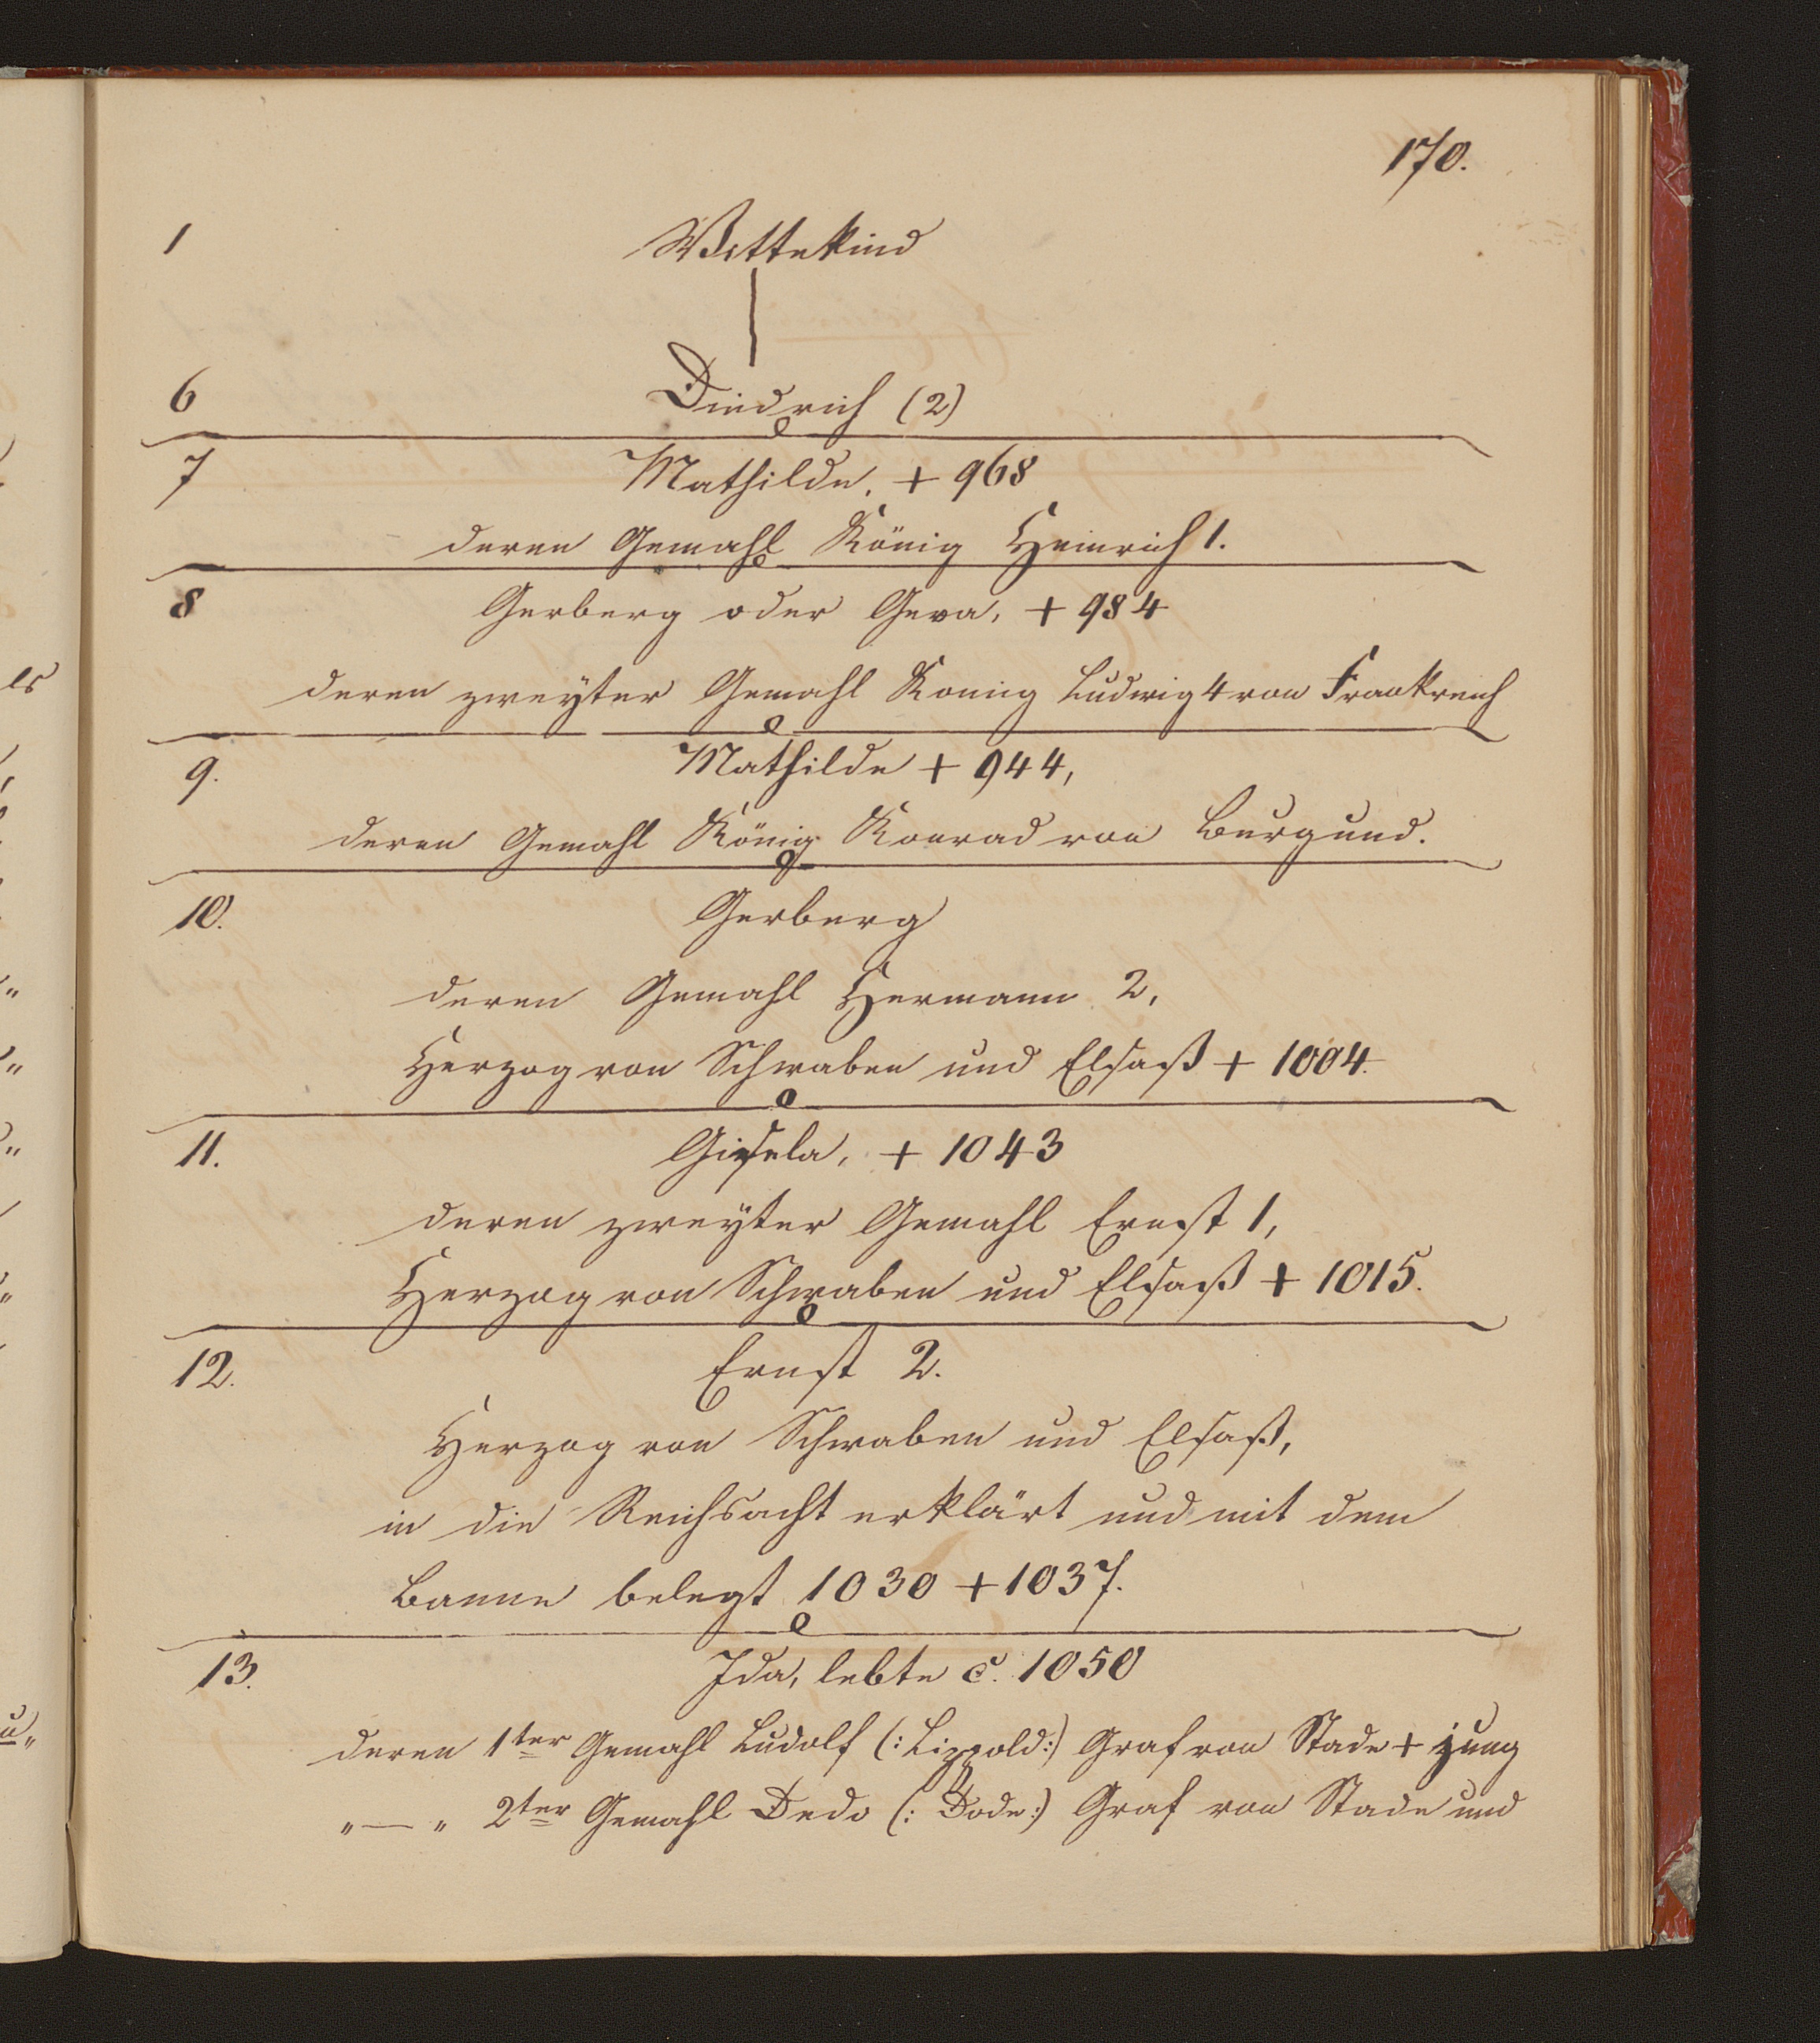 170.
1 Wittekind
6 Diedrich (2)
7 Mathilde, + 968
deren Gemahl König Heinrich 1.
8 Gerberg oder Geva, + 984
deren zweyter Gemahl Konig Ludwig 4 von Frankreich
9. Mathilde + 944,
deren Gemahl König Konrad von Burgund.
10. Gerberg
deren Gemahl Hermann 2,
Herzog von Schwaben und Elsaß + 1004.
11. Gisela, + 1043
deren zweyter Gemahl Ernst 1,
Herzog von Schwaben und Elsaß + 1015.
12. Ernst 2.
Herzog von Schwaben und Elsaß,
in die Reichsacht erklärt und mit dem
Banne belegt 1030 + 1037.
13. Ida, lebte c. 1050
deren 1ter Gemahl Ludolf (: Lippold :) Graf von Stade + jung
„ — „ 2ter Gemahl Dedo (: Dode :) Graf von Stade und